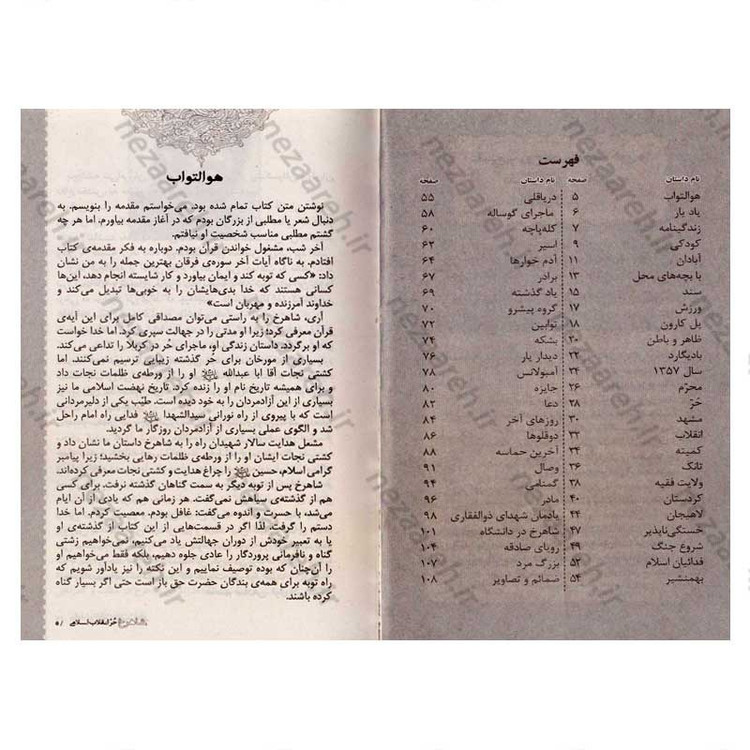 فهرست
نام داستان صفحه نام داستان صفحه
هوالتواب ۵ دریاقلی ۵۵
یاد یار ۶ ماجرای گوساله ۵۸
زندگینامه ۷ کله‌پاچه ۶۰
کودکی ۹ اسیر ۶۲
آبادان ۱۱ آدم خوارها ۶۴
با بچه‌های محل ۱۳ برادر ۶۷
سند ۱۵ یاد گذشته ۶۹
ورزش ۱۷ گروه پیشرو ۷۰
پل کارون ۱۸ توابین ۷۲
ظاهر و باطن ۲۰ بشکه ۷۴
بادیگارد ۲۲ دیدار یار ۷۶
سال ۱۳۵۷ ۲۴ آمبولانس ۷۸
محرّم ۲۶ جایزه ۸۰
حُرّ ۲۸ دعا ۸۲
مشهد ۳۰ روزهای آخر ۸۴
انقلاب ۳۲ دوقلوها ۸۶
کمیته ۳۴ آخرین حماسه ۸۸
تانک ۳۶ وصال ۹۱
ولایت فقیه ۳۸ گمنامی ۹۴
کردستان ۴۰ مادر ۹۶
لاهیجان ۴۴ یادمان شهدای ذوالفقاری ۹۸
خستگی‌ناپذیر ۴۷ شاهرخ در دانشگاه ۱۰۱
شروع جنگ ۴۹ رویای صادقه ۱۰۴
فدائیان اسلام ۵۲ بزرگ مرد ۱۰۷
بهمنشیر ۵۴ ضمائم و تصاویر ۱۰۸
هوالتواب
نوشتن متن کتاب تمام شده بود. می‌خواستم مقدمه را بنویسم. به
دنبال شعر یا مطلبی از بزرگان بودم که در آغاز مقدمه بیاورم. اما هر چه
گشتم مطلبی مناسب شخصیت او نیافتم.
آخر شب، مشغول خواندن قرآن بودم. دوباره به فکر مقدمه‌ی کتاب
افتادم. به ناگاه آیات آخر سوره‌ی فرقان بهترین جمله را به من نشان
داد: «کسی که توبه کند و ایمان بیاورد و کار شایسته انجام دهد، این‌ها
کسانی هستند که خدا بدی‌هایشان را به خوبی‌ها تبدیل می‌کند و
خداوند آمرزنده و مهربان است»
آری، شاهرخ را به راستی می‌توان مصداقی کامل برای این آیه‌ی
قرآن معرفی کرد؛ زیرا او مدتی را در جهالت سپری کرد. اما خدا خواست
که او برگردد. داستان زندگی او، ماجرای حُر در کربلا را تداعی می‌کند.
بسیاری از مورخان برای حُر گذشته زیبایی ترسیم نمی‌کنند. اما
کشتی نجات آقا ابا عبدالله او را از ورطه‌ی ظلمات نجات داد
و برای همیشه تاریخ نام او را زنده کرد. تاریخ نهضت اسلامی ما نیز
بسیاری از این آزادمردان را به خود دیده است. طیّب یکی از دلیرمردانی
است که با پیروی از راه نورانی سیدالشهدا فدایی راه امام راحل
شد و الگوی عملی بسیاری از آزادمردان روزگار ما گردید.
مشعل هدایت سالار شهیدان راه را به شاهرخ داستان ما نشان داد و
کشتی نجات ایشان او را از ورطه‌ی ظلمات رهایی بخشید؛ زیرا پیامبر
گرامی اسلام، حسین را چراغ هدایت و کشتی نجات معرفی کرده‌اند.
شاهرخ پس از توبه دیگر به سمت گناهان گذشته نرفت. برای کسی
هم از گذشته‌ی سیاهش نمی‌گفت. هر زمانی هم که یادی از آن ایام
می‌شد، با حسرت و اندوه می‌گفت: غافل بودم. معصیت کردم. اما خدا
دستم را گرفت. لذا اگر در قسمت‌هایی از این کتاب از گذشته‌ی او
یا به تعبیر خودش از دوران جهالتش یاد می‌کنیم، نمی‌خواهیم زشتی
گناه و نافرمانی پروردگار را عادی جلوه دهیم. بلکه فقط می‌خواهیم او
را آن‌چنان که بوده توصیف نماییم و این نکته را نیز یادآور شویم که
راه توبه برای همه‌ی بندگان حضرت حق باز است حتی اگر بسیار گناه
کرده باشند.
شاهرخ حُرّ انقلاب اسلامی / ۵
nezaareh.ir